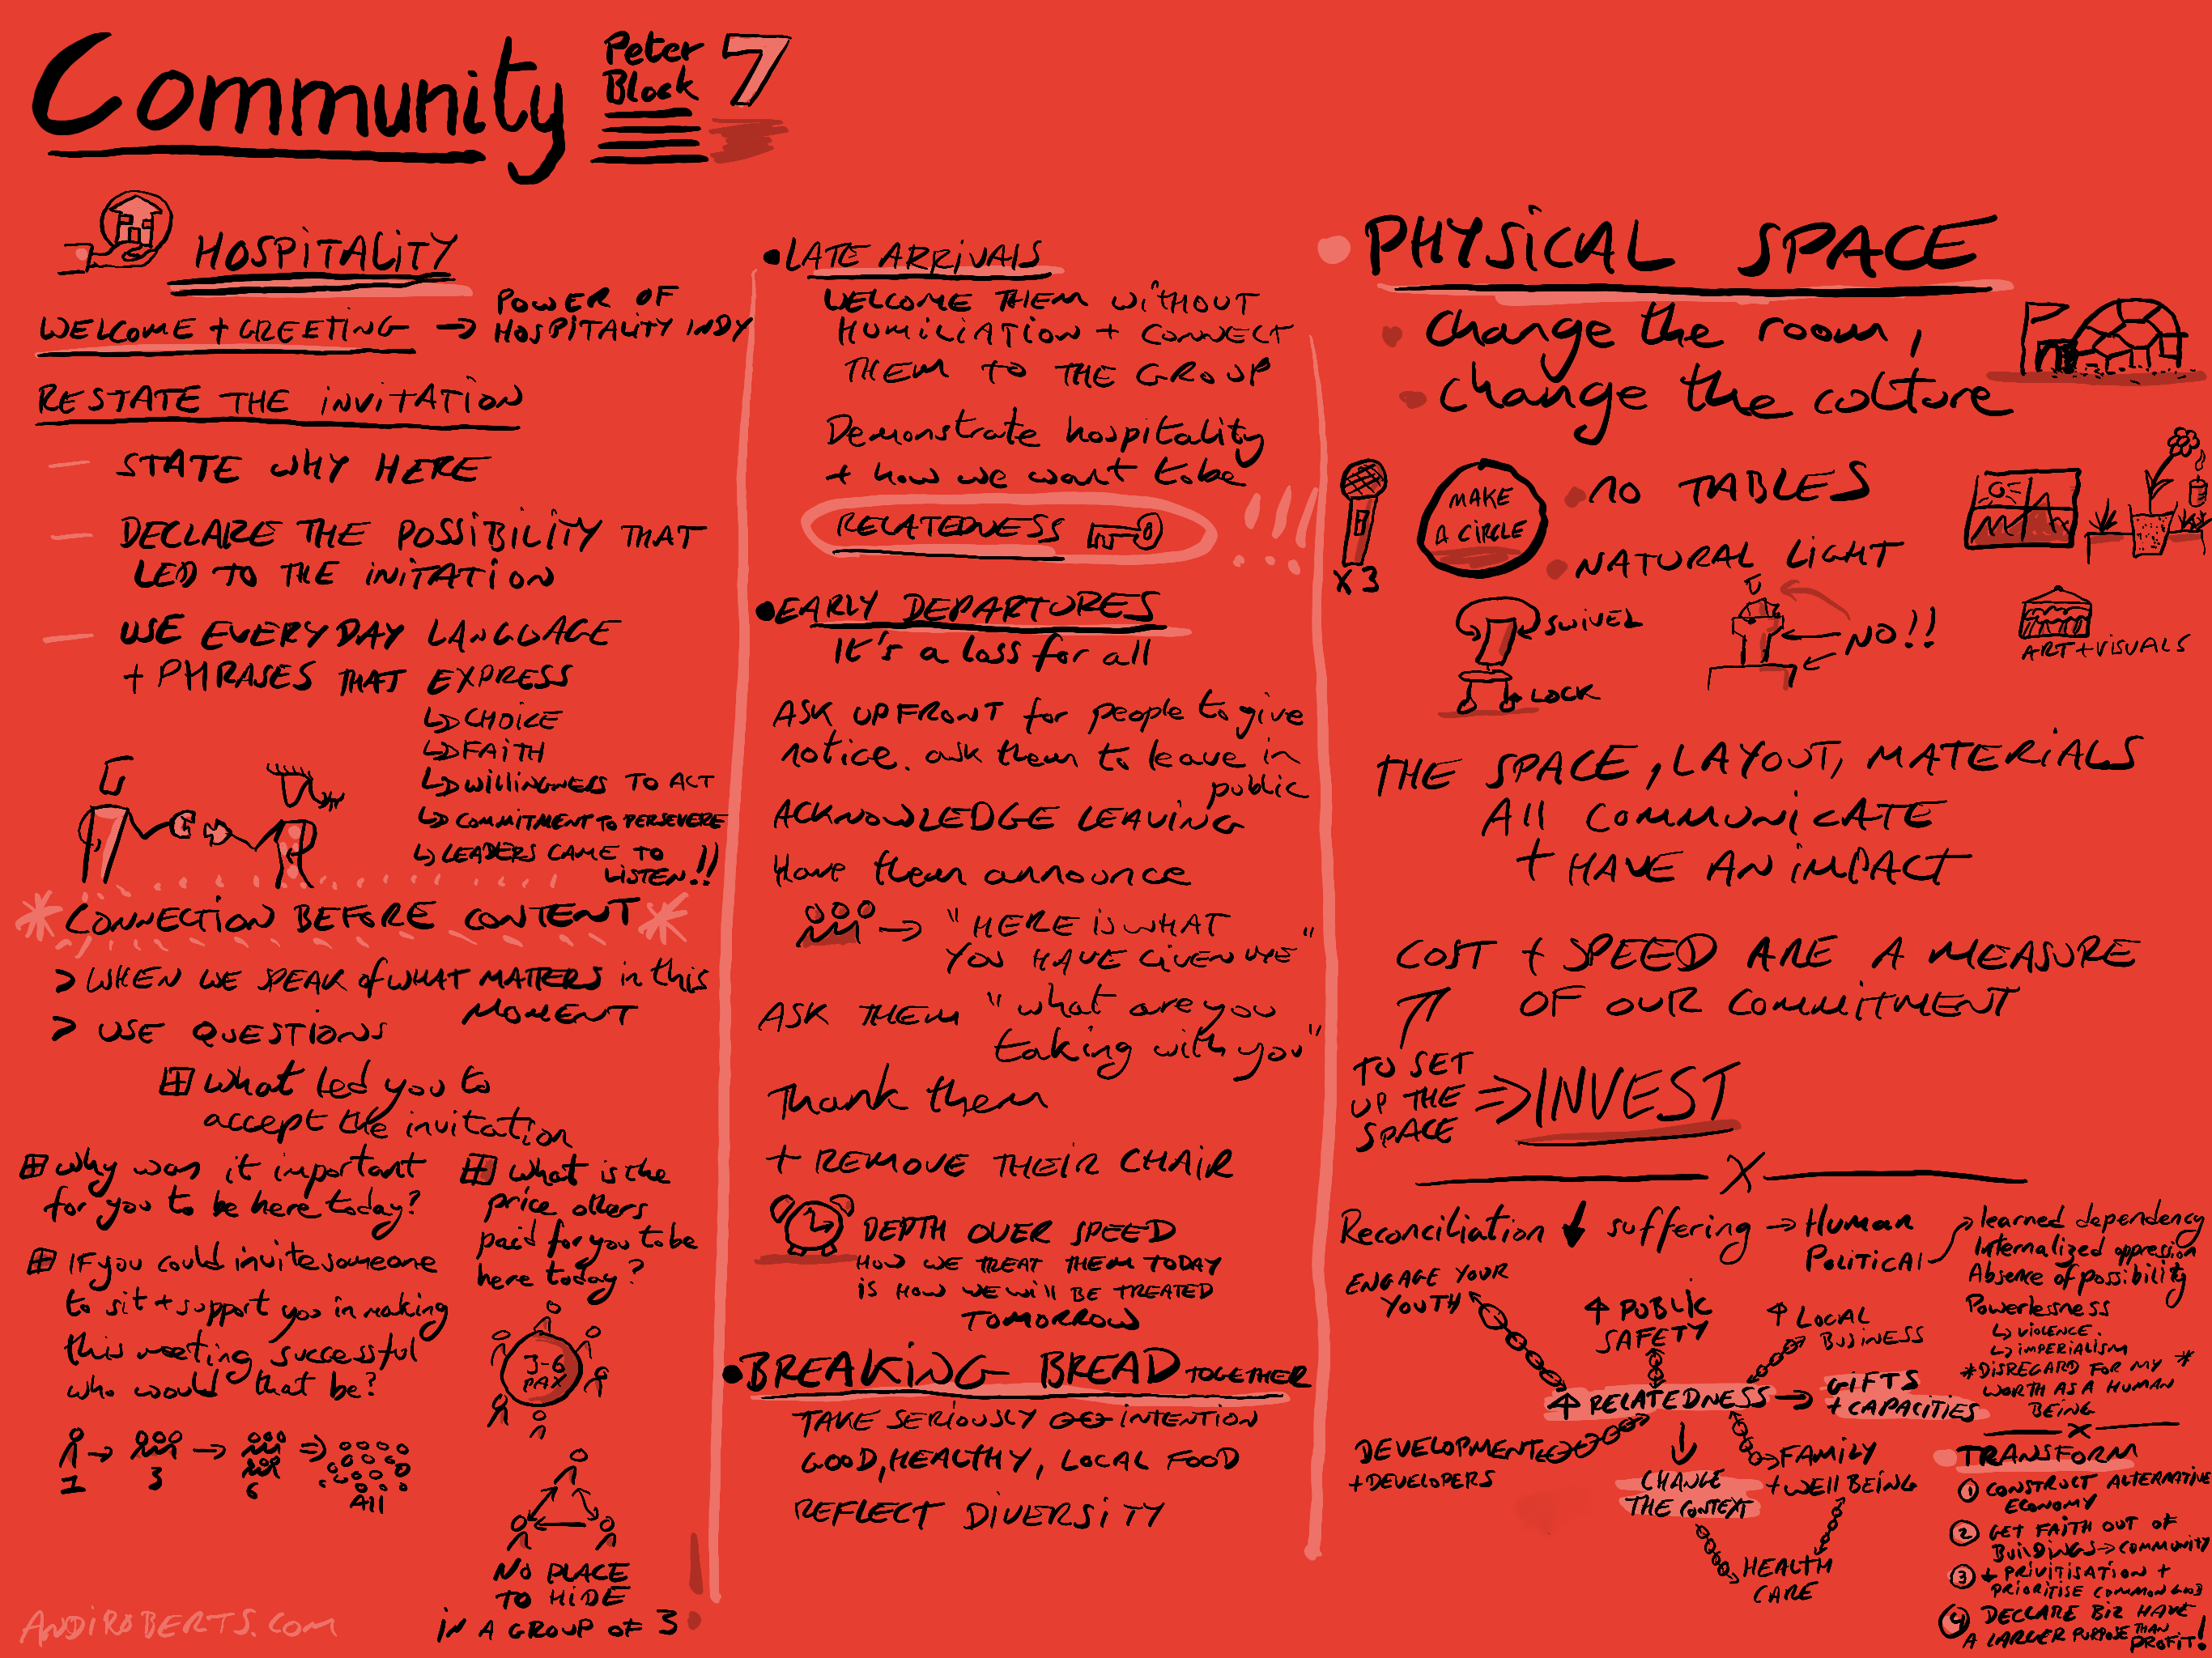 Community
Peter
Block
7
HOSPITALITY
WELCOME + GREETING → POWER OF
HOSPITALITY INDY
RESTATE THE INVITATION
— STATE WHY HERE
— DECLARE THE POSSIBILITY THAT
LED TO THE INITATION
— USE EVERYDAY LANGUAGE
+ PHRASES THAT EXPRESS
↳ CHOICE
↳ FAITH
↳ WILLINGNERS TO ACT
↳ COMMITMENT TO PERSEVERE
↳ LEADERS CAME TO
LISTEN!!
* CONNECTION BEFORE CONTENT *
> WHEN WE SPEAK of WHAT MATTERS in this
MOMENT
> USE QUESTIONS
What led you to
accept the invitation
Why was it important
for you to be here today?
What is the
price others
paid for you to be
here today?
If you could invite someone
to sit + support you in making
this meeting successful
who would that be?
3-6
PAX
1 → 3 → 6 ⇒ All
NO PLACE
TO HIDE
IN A GROUP OF 3
ANDIROBERTS.COM
• LATE ARRIVALS
WELCOME THEM WITHOUT
HUMILIATION + CONNECT
THEM TO THE GROUP
Demonstrate hospitality
+ how we want to be
RELATEDNESS
!!!
• EARLY DEPARTURES
It's a loss for all
ASK UPFRONT for people to give
notice. ask them to leave in
public
ACKNOWLEDGE LEAVING
Have them announce
→ "HERE IS WHAT
YOU HAVE GIVEN ME"
ASK THEM "what are you
taking with you"
Thank them
+ REMOVE THEIR CHAIR
DEPTH OVER SPEED
HOW WE TREAT THEM TODAY
IS HOW WE will BE TREATED
TOMORROW
• BREAKING BREAD TOGETHER
TAKE SERIOUSLY INTENTION
GOOD, HEALTHY, LOCAL FOOD
REFLECT DIVERSITY
PHYSICAL SPACE
• change the room,
• change the colture
X3
MAKE
A CIRCLE
• NO TABLES
• NATURAL LIGHT
SWIVEL
LOCK
NO!!
ART + VISUALS
THE SPACE, LAYOUT, MATERIALS
All COMMUNICATE
+ HAVE AN IMPACT
COST + SPEED ARE A MEASURE
OF OUR COMMITMENT
TO SET
UP THE
SPACE
⇒ INVEST
X
Reconciliation ↓ suffering → Human
Political
learned dependency
Internalized oppresion
Absence of possibility
Powerlessness
↳ VIOLENCE
↳ IMPERIALISM
* DISREGARD FOR MY *
WORTH AS A HUMAN
BEING
ENGAGE YOUR
YOUTH
↑ PUBLIC
SAFETY
↑ LOCAL
BUSINESS
↑ RELATEDNESS → GIFTS
+ CAPACITIES
DEVELOPMENT
+ DEVELOPERS
↓
CHANGE
THE CONTEXT
FAMILY
+ WELL BEING
HEALTH
CARE
x
TRANSFORM
1 CONSTRUCT ALTERNATIVE
ECONOMY
2 GET FAITH OUT OF
BUILDINGS → COMMUNITY
3 ↓ PRIVITISATION +
PRIORITISE COMMON GOOD
4 DECLARE BIZ HAVE
A LARGER PURPOSE THAN
PROFIT!